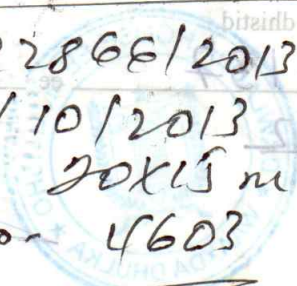 2866/2013
/10/2013
20x15 m
- 4603